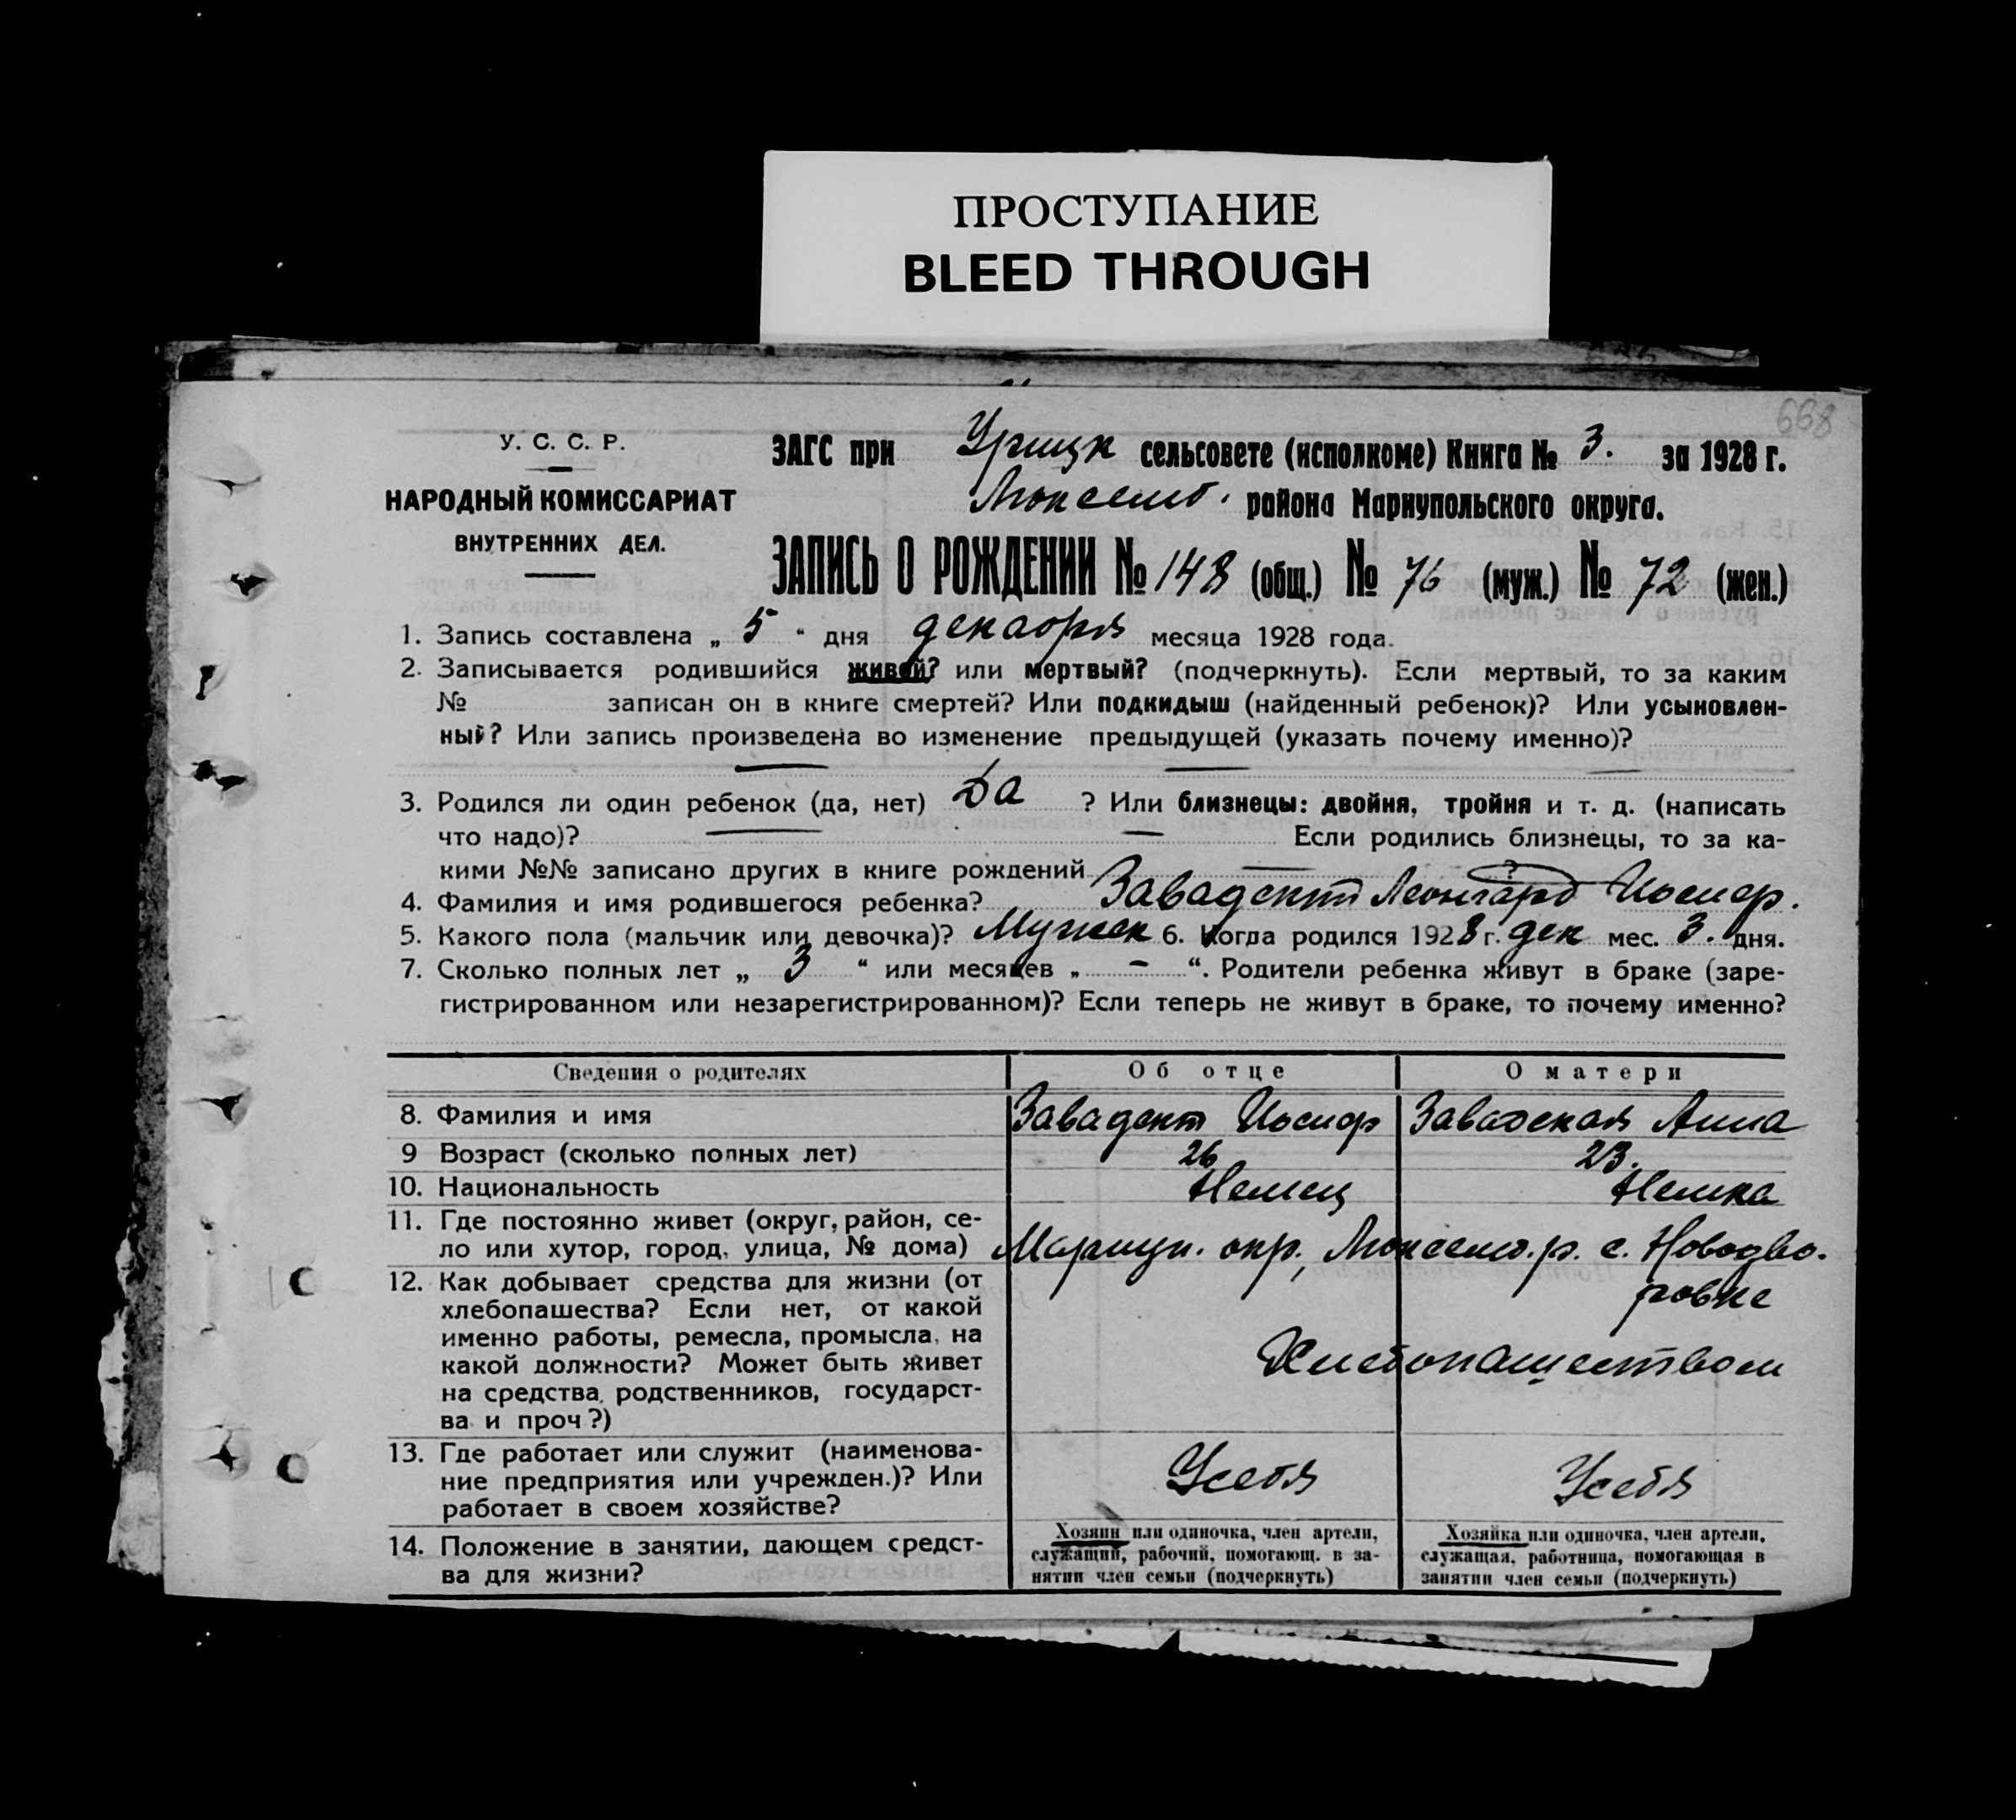 ПРОСТУПАНИЕ
BLEED THROUGH
668
У. С. С. Р.
НАРОДНЫЙ КОМИССАРИАТ
ВНУТРЕННИХ ДЕЛ.
ЗАГС при Урицк сельсовете (исполкоме) Книга № 3. за 1928 г.
района Мариупольского округа.
ЗАПИСЬ О РОЖДЕНИИ № 148 (общ.) № 76 (муж.) № 72 (жен.)
1. Запись составлена „ 5 “ дня декабря месяца 1928 года.
2. Записывается родившийся живой? или мертвый? (подчеркнуть). Если мертвый, то за каким
№ записан он в книге смертей? Или подкидыш (найденный ребенок)? Или усыновлен-
ный? Или запись произведена во изменение предыдущей (указать почему именно)?
3. Родился ли один ребенок (да, нет) Да ? Или близнецы: двойня, тройня и т. д. (написать
что надо)? — — Если родились близнецы, то за ка-
кими №№ записано других в книге рождений — ?
4. Фамилия и имя родившегося ребенка? Леонгард Иосиф.
5. Какого пола (мальчик или девочка)? Мужск 6. Когда родился 1928 г. дек мес. 3. дня.
7. Сколько полных лет „ 3 “ или месяцев „ - “. Родители ребенка живут в браке (заре-
гистрированном или незарегистрированном)? Если теперь не живут в браке, то почему именно?
Сведения о родителях Об отце О матери
8. Фамилия и имя Иосиф Завадская Анна
9 Возраст (сколько полных лет) 26 23.
10. Национальность Немец Немка
11. Где постоянно живет (округ, район, се-
ло или хутор, город, улица, № дома) Мариуп. окр., р. с. Новодво-
ровке
12. Как добывает средства для жизни (от
хлебопашества? Если нет, от какой
именно работы, ремесла, промысла, на
какой должности? Может быть живет
на средства родственников, государст-
ва и проч?)
Хлебопашеством
13. Где работает или служит (наименова-
ние предприятия или учрежден.)? Или
работает в своем хозяйстве?
У себя У себя
14. Положение в занятии, дающем средст-
ва для жизни?
Хозяин или одиночка, член артели,
служащий, рабочий, помогающ. в за-
нятии член семьи (подчеркнуть)
Хозяйка или одиночка, член артели,
служащая, работница, помогающая в
занятии член семьи (подчеркнуть)